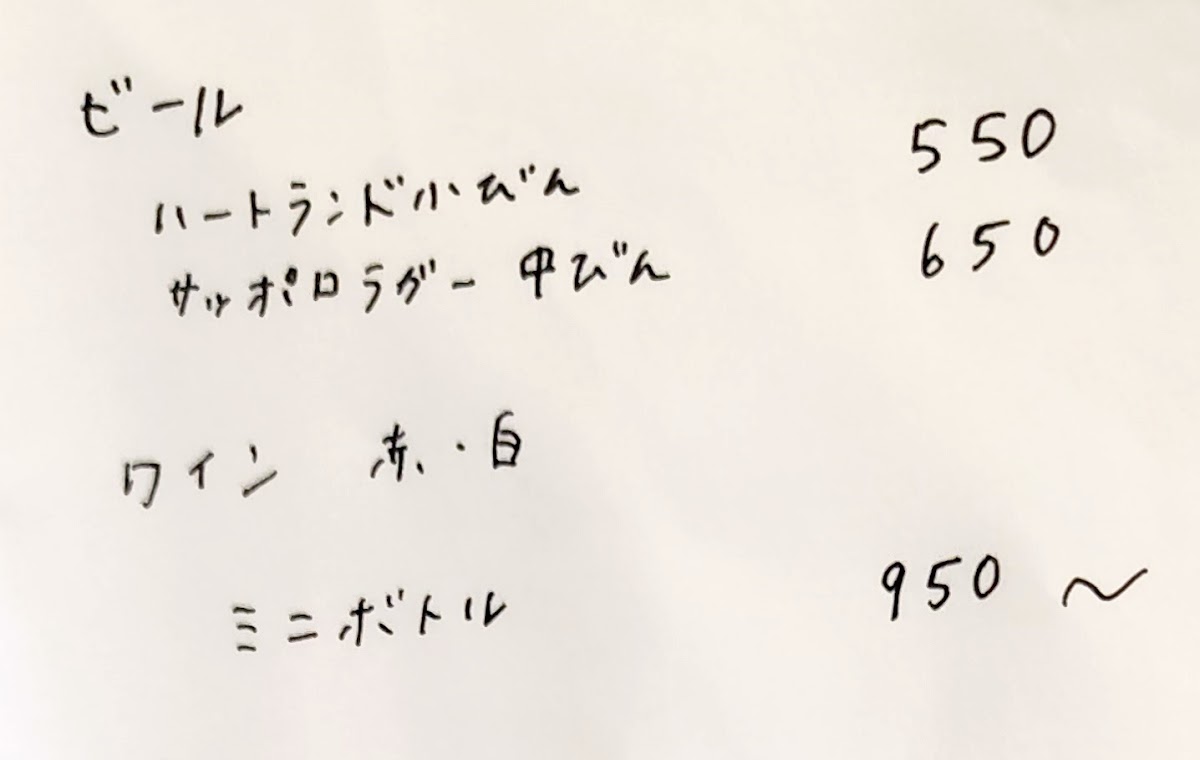 ビール
ハートランド小びん 550
サッポロラガー 中びん 650
ワイン 赤・白
ミニボトル 950 〜